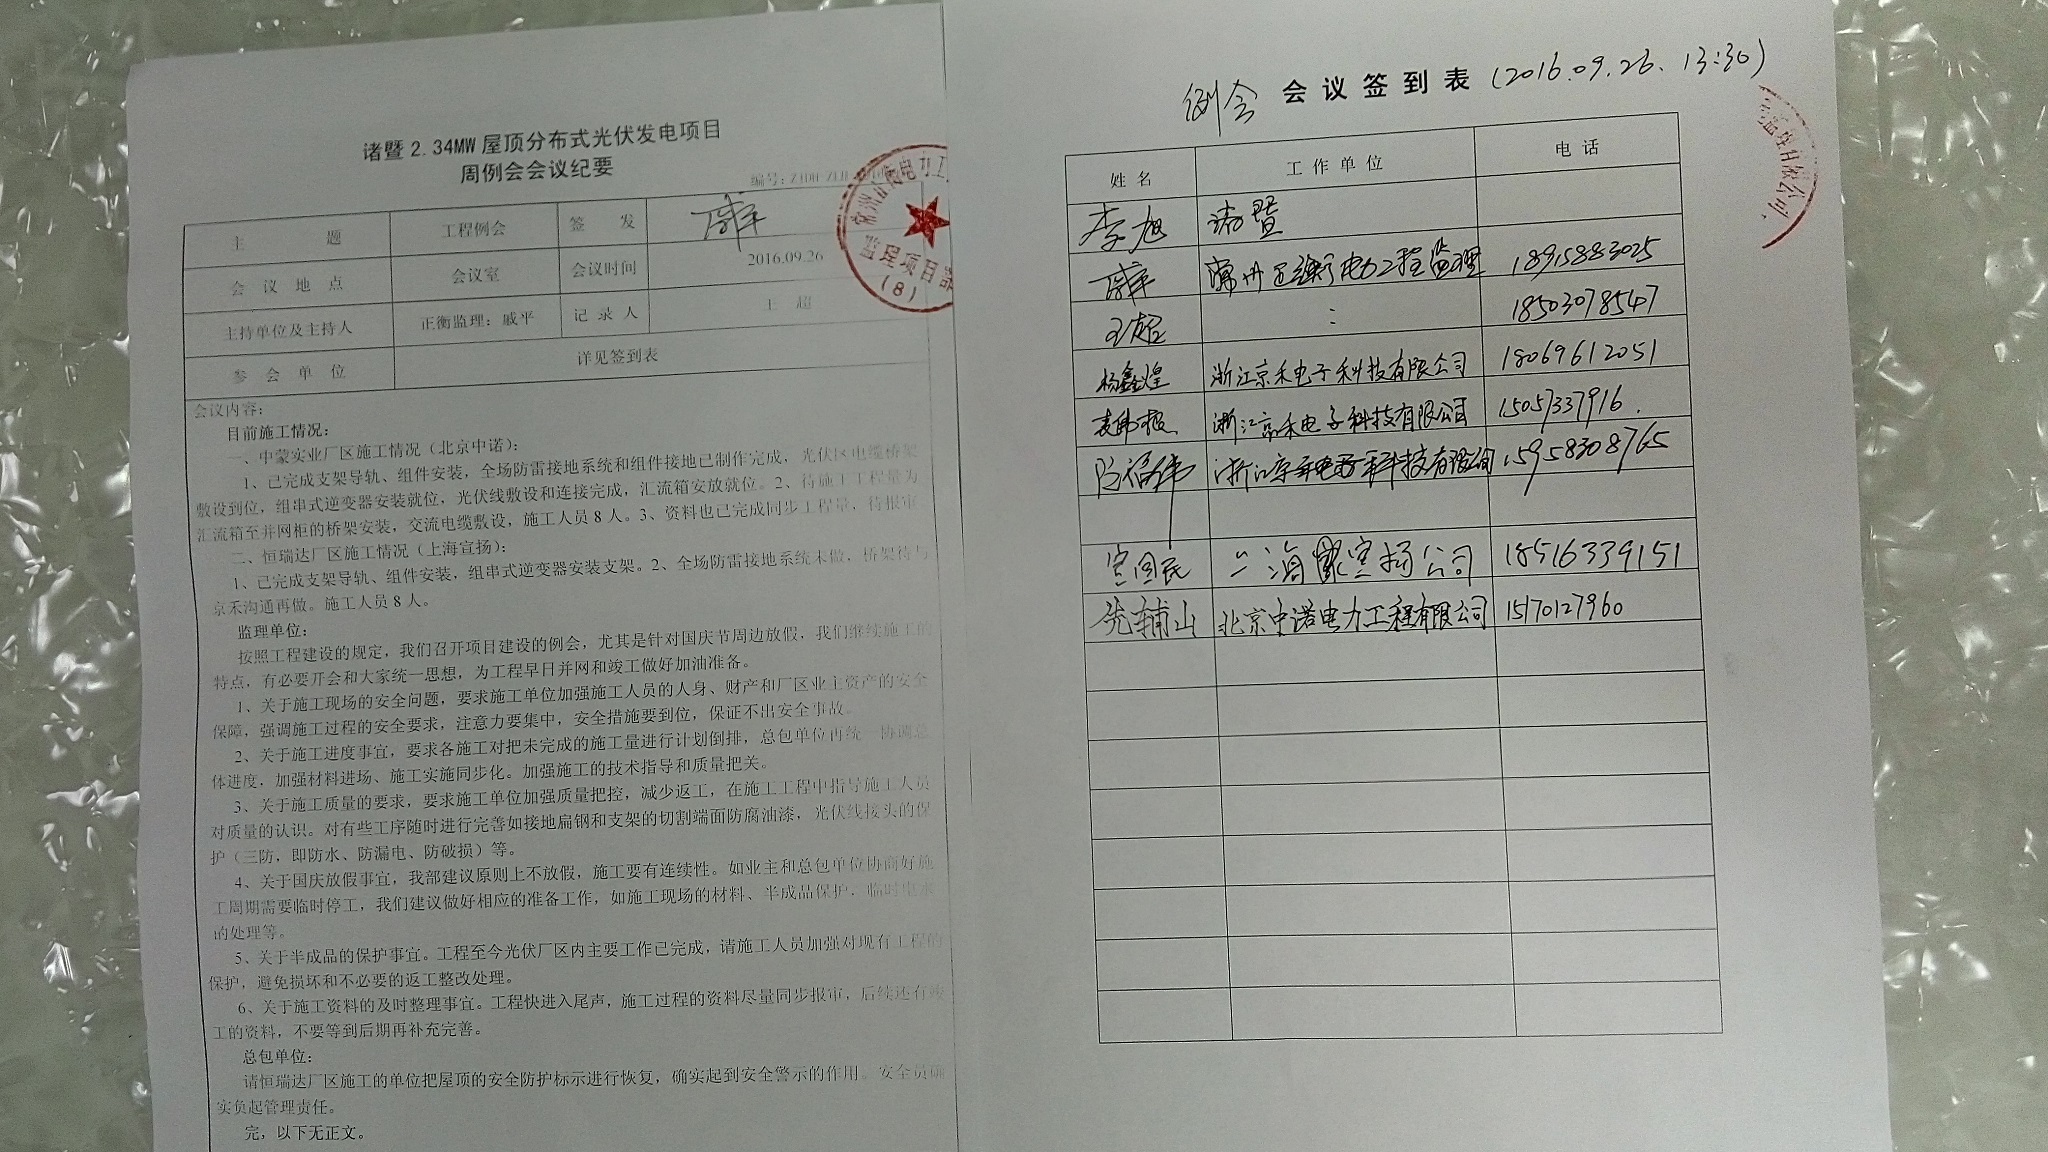 诸暨 2.34MW 屋顶分布式光伏发电项目
周例会会议纪要
编号:
主 题 工程例会 签 发
会 议 地 点 会议室 会议时间 2016.09.26
主持单位及主持人 正衡监理：戚平 记 录 人 王 超
参 会 单 位 详见签到表
监理项目部
(8)
会议内容：
目前施工情况：
一、中蒙实业厂区施工情况（北京中诺）：
1、已完成支架导轨、组件安装，全场防雷接地系统和组件接地已制作完成，光伏区电缆桥架
敷设到位，组串式逆变器安装就位，光伏线敷设和连接完成，汇流箱安放就位。2、待施工工程量为
汇流箱至并网柜的桥架安装，交流电缆敷设，施工人员 8 人。3、资料也已完成同步工程量，待报审
二、恒瑞达厂区施工情况（上海宣扬）：
1、已完成支架导轨、组件安装，组串式逆变器安装支架。2、全场防雷接地系统未做，桥架待与
京禾沟通再做。施工人员 8 人。
监理单位：
按照工程建设的规定，我们召开项目建设的例会，尤其是针对国庆节周边放假，我们继续施工的
特点，有必要开会和大家统一思想，为工程早日并网和竣工做好加油准备。
1、关于施工现场的安全问题，要求施工单位加强施工人员的人身、财产和厂区业主资产的安全
保障，强调施工过程的安全要求，注意力要集中，安全措施要到位，保证不出安全事故。
2、关于施工进度事宜，要求各施工对把未完成的施工量进行计划倒排，总包单位再统一协调总
体进度，加强材料进场、施工实施同步化。加强施工的技术指导和质量把关。
3、关于施工质量的要求，要求施工单位加强质量把控，减少返工，在施工工程中指导施工人员
对质量的认识。对有些工序随时进行完善如接地扁钢和支架的切割端面防腐油漆，光伏线接头的保
护（三防，即防水、防漏电、防破损）等。
4、关于国庆放假事宜，我部建议原则上不放假，施工要有连续性。如业主和总包单位协商好施
工周期需要临时停工，我们建议做好相应的准备工作，如施工现场的材料、半成品保护，临时电水
的处理等。
5、关于半成品的保护事宜。工程至今光伏厂区内主要工作已完成，请施工人员加强对现有工程的
保护，避免损坏和不必要的返工整改处理。
6、关于施工资料的及时整理事宜。工程快进入尾声，施工过程的资料尽量同步报审，后续还有竣
工的资料，不要等到后期再补充完善。
总包单位：
请恒瑞达厂区施工的单位把屋顶的安全防护标示进行恢复，确实起到安全警示的作用。安全员确
实负起管理责任。
完，以下无正文。
例会 会 议 签 到 表 (2016.09.26. 13:30)
姓 名 工 作 单 位 电 话
李旭 诸暨
戚平 常州正衡电力工程监理 18915883025
王超 : 18503078547
杨鑫煌 浙江京禾电子科技有限公司 18069612051
浙江京禾电子科技有限公司 15057337916.
浙江京禾电子科技有限公司 15958308765
宣国民 上海宣扬公司 18516339151
先辅山 北京中诺电力工程有限公司 15170127960